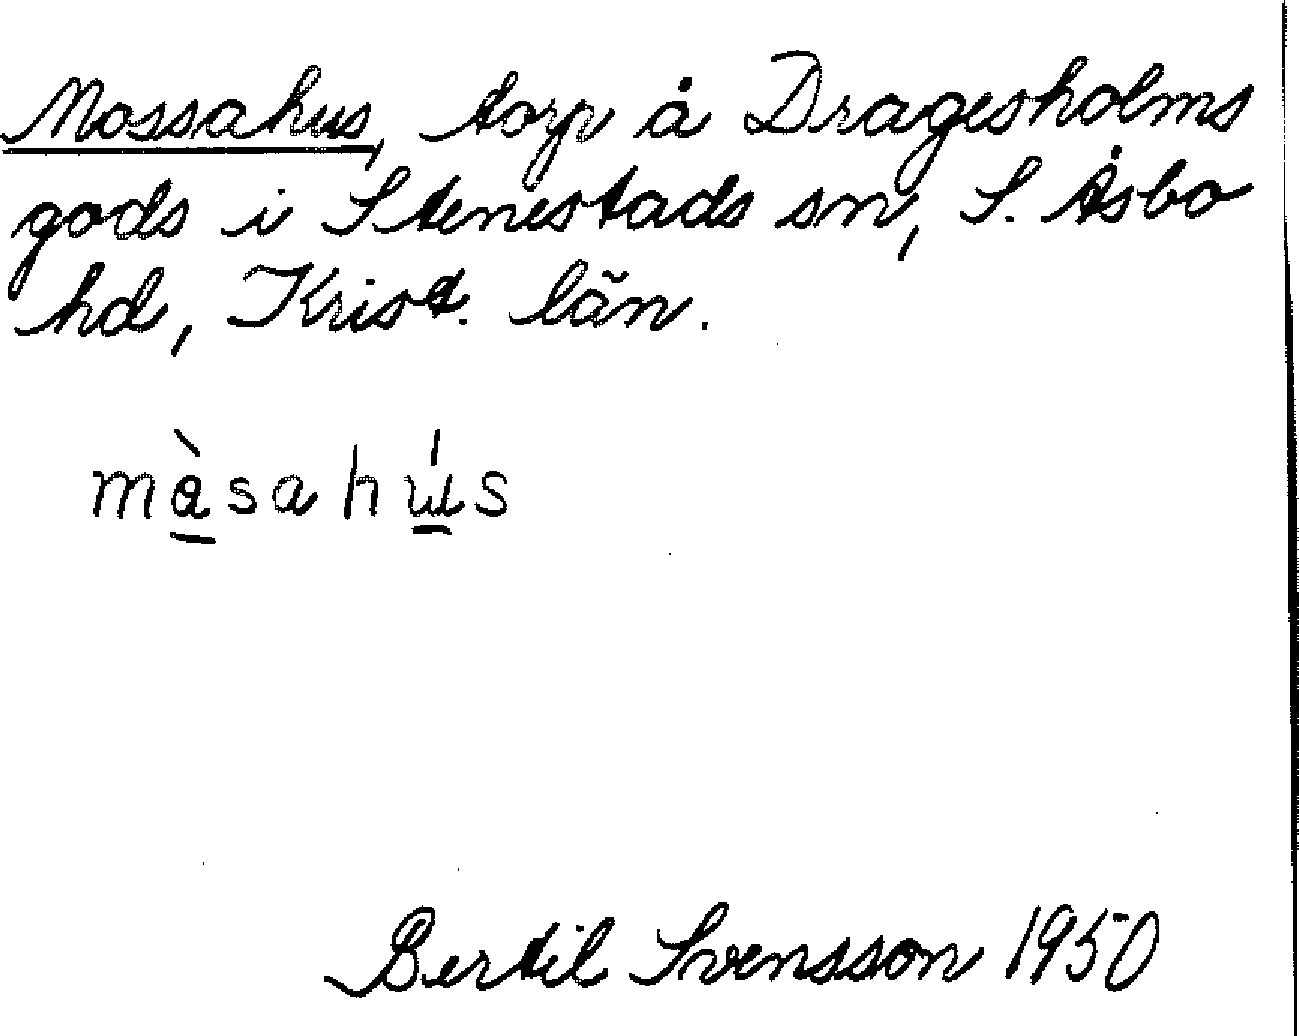 Mossahus, torp å Dragesholms
gods i Stenestads sn, S. Åsbo
hd, Krist. län.
màsahús
Bertil Svensson 1950